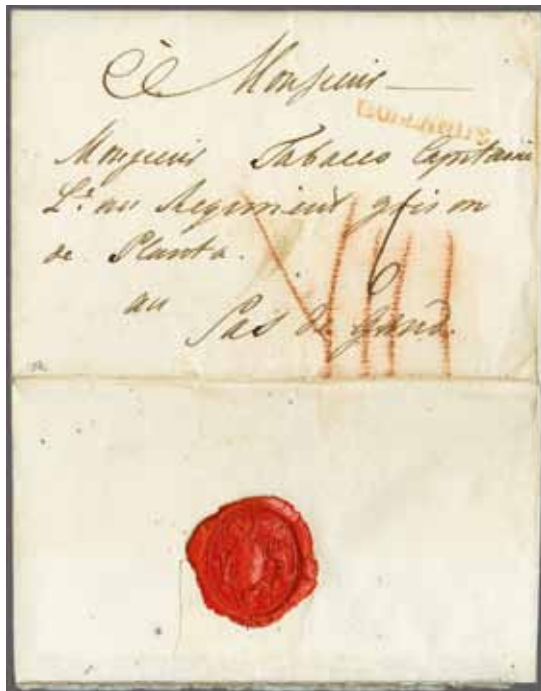 à Monsieur
HOLLANDE
Monsieur Tabacco Capitaine
Lt. au Regiment grison
de Planta.
au
Sas de Gand.
VIII